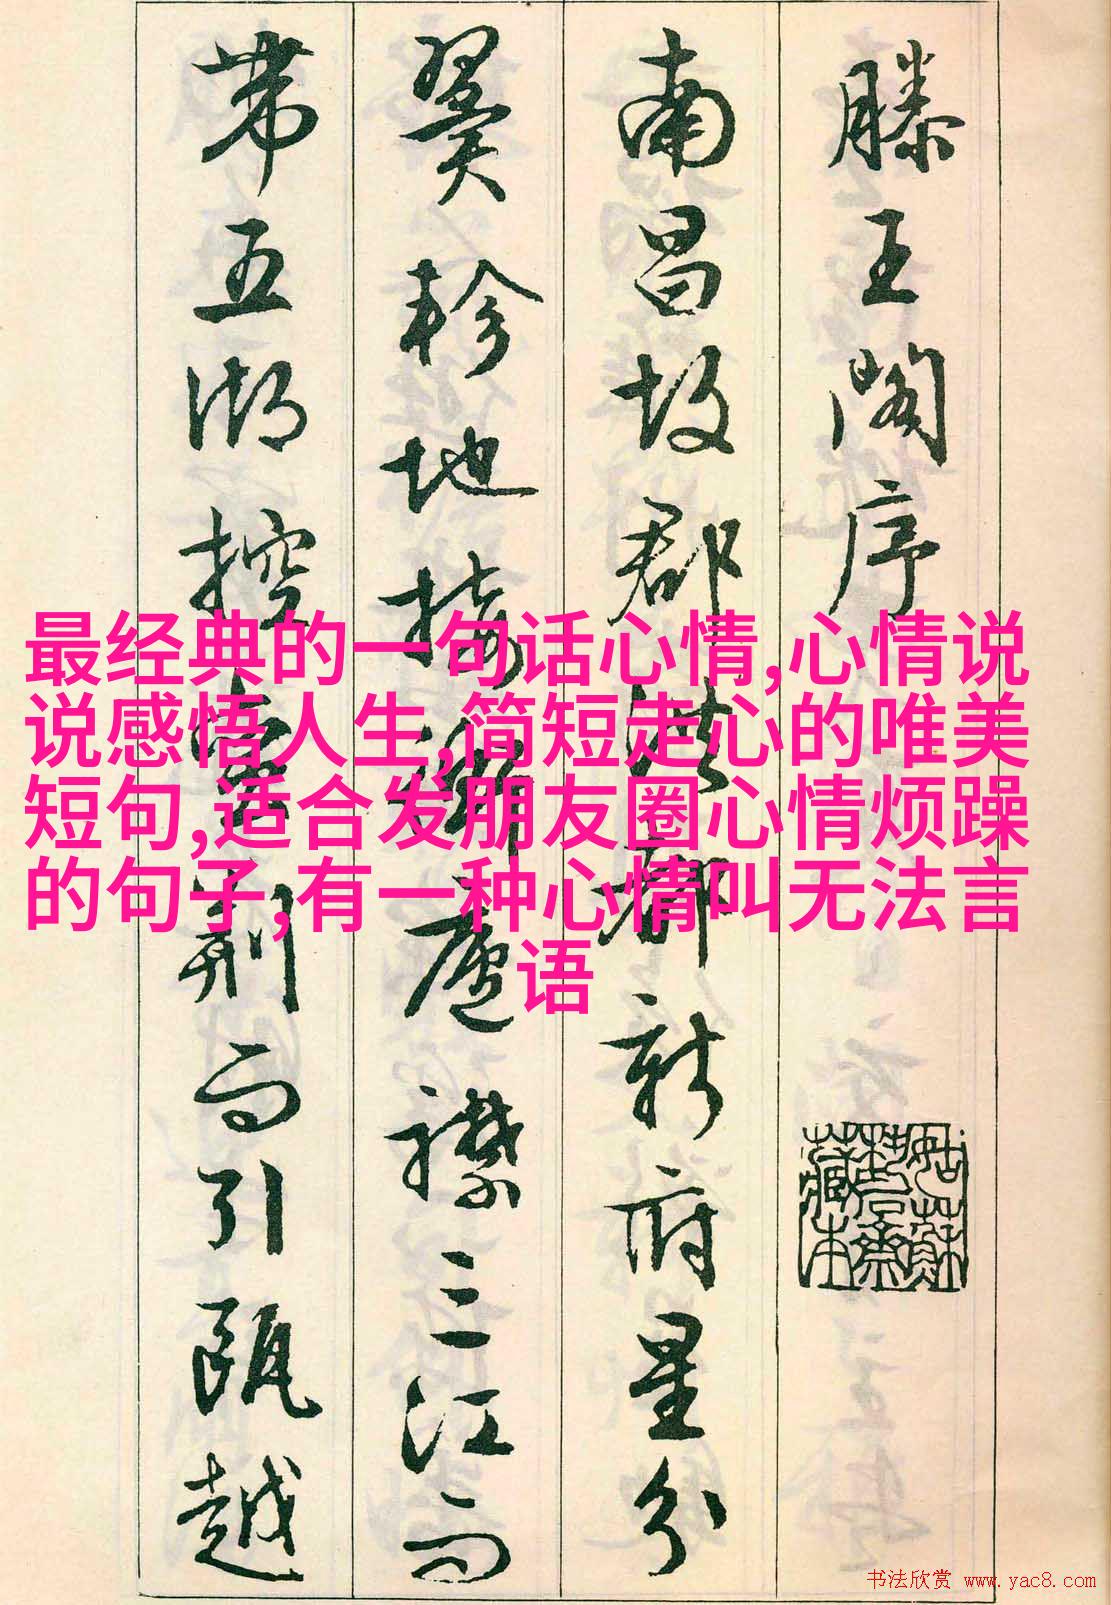 滕王閣序
南昌故郡洪都新府星分
翼軫地接衡廬襟三江而
帶五湖控蠻荊而引甌越
最经典的一句话心情,心情说
说感悟人生,简短走心的唯美
短句,适合发朋友圈心情烦躁
的句子,有一种心情叫无法言
语
书法欣赏 www.yac8.com